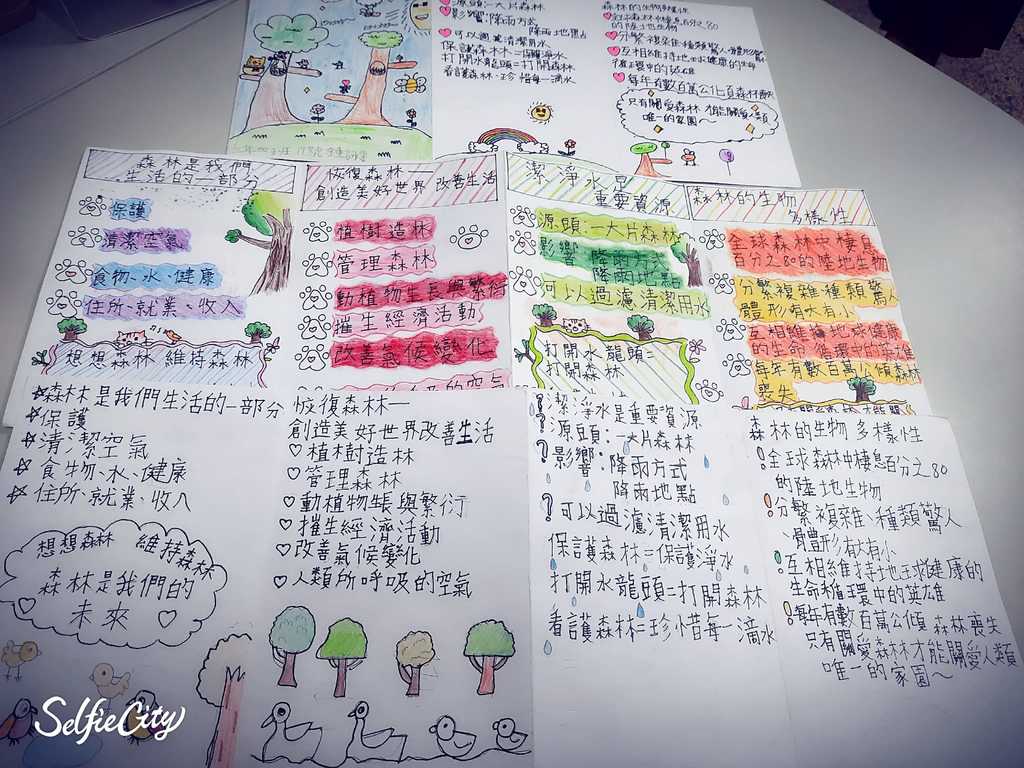 源頭:一大片森林
影響:降雨方式
降雨地點
可以過濾清潔用水
保護森林=保護淨水
打開水龍頭=打開森林
看護森林=珍惜每一滴水
森林的生物多樣性
全球森林中棲息百分之80
的陸地生物
分繁複雜種類驚人
互相維持地球健康的生命
循環中的英雄
每年有數百萬公傾森林喪失
只有關愛森林 才能關愛人類
唯一的家園~
森林是我們
生活的一部分
保護
清潔空氣
食物、水、健康
住所、就業、收入
想想森林 維持森林
恢復森林—
創造美好世界 改善生活
植樹造林
管理森林
動植物生長與繁衍
摧生經濟活動
改善氣候變化
的空氣
潔淨水是
重要資源
源頭:一大片森林
影響 降雨方式
降雨地點
可以過濾清潔用水
打開水龍頭=
打開森林
森林的生物
多樣性
全球森林中棲息
百分之80的陸地生物
分繁複雜種類驚人
體形有大有小
互相維持地球健康
的生命循環中的英雄
每年有數百萬公傾森林
喪失
森林是我們生活的一部分
保護
清潔空氣
食物、水、健康
住所、就業、收入
想想森林 維持森林
森林是我們的
未來
恢復森林—
創造美好世界改善生活
植樹造林
管理森林
動植物生長與繁衍
摧生經濟活動
改善氣候變化
人類所呼吸的空氣
潔淨水是重要資源
源頭:一大片森林
影響:降雨方式
降雨地點
可以過濾清潔用水
保護森林=保護淨水
打開水龍頭=打開森林
看護森林=珍惜每一滴水
森林的生物多樣性
全球森林中棲息百分之80
的陸地生物
分繁複雜、種類驚人
體形有大有小
互相維持地球健康的
生命循環中的英雄
每年有數百萬公傾森林喪失
只有關愛森林才能關愛人類
唯一的家園~
SelfieCity